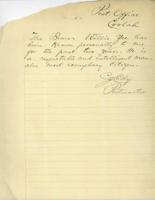 Post Office
Coolah
The Bearer Willie Yee has
been known personally to me
for the past two years. He is
a respectable and intelligent man
also most exemplary citizen.
Postmaster